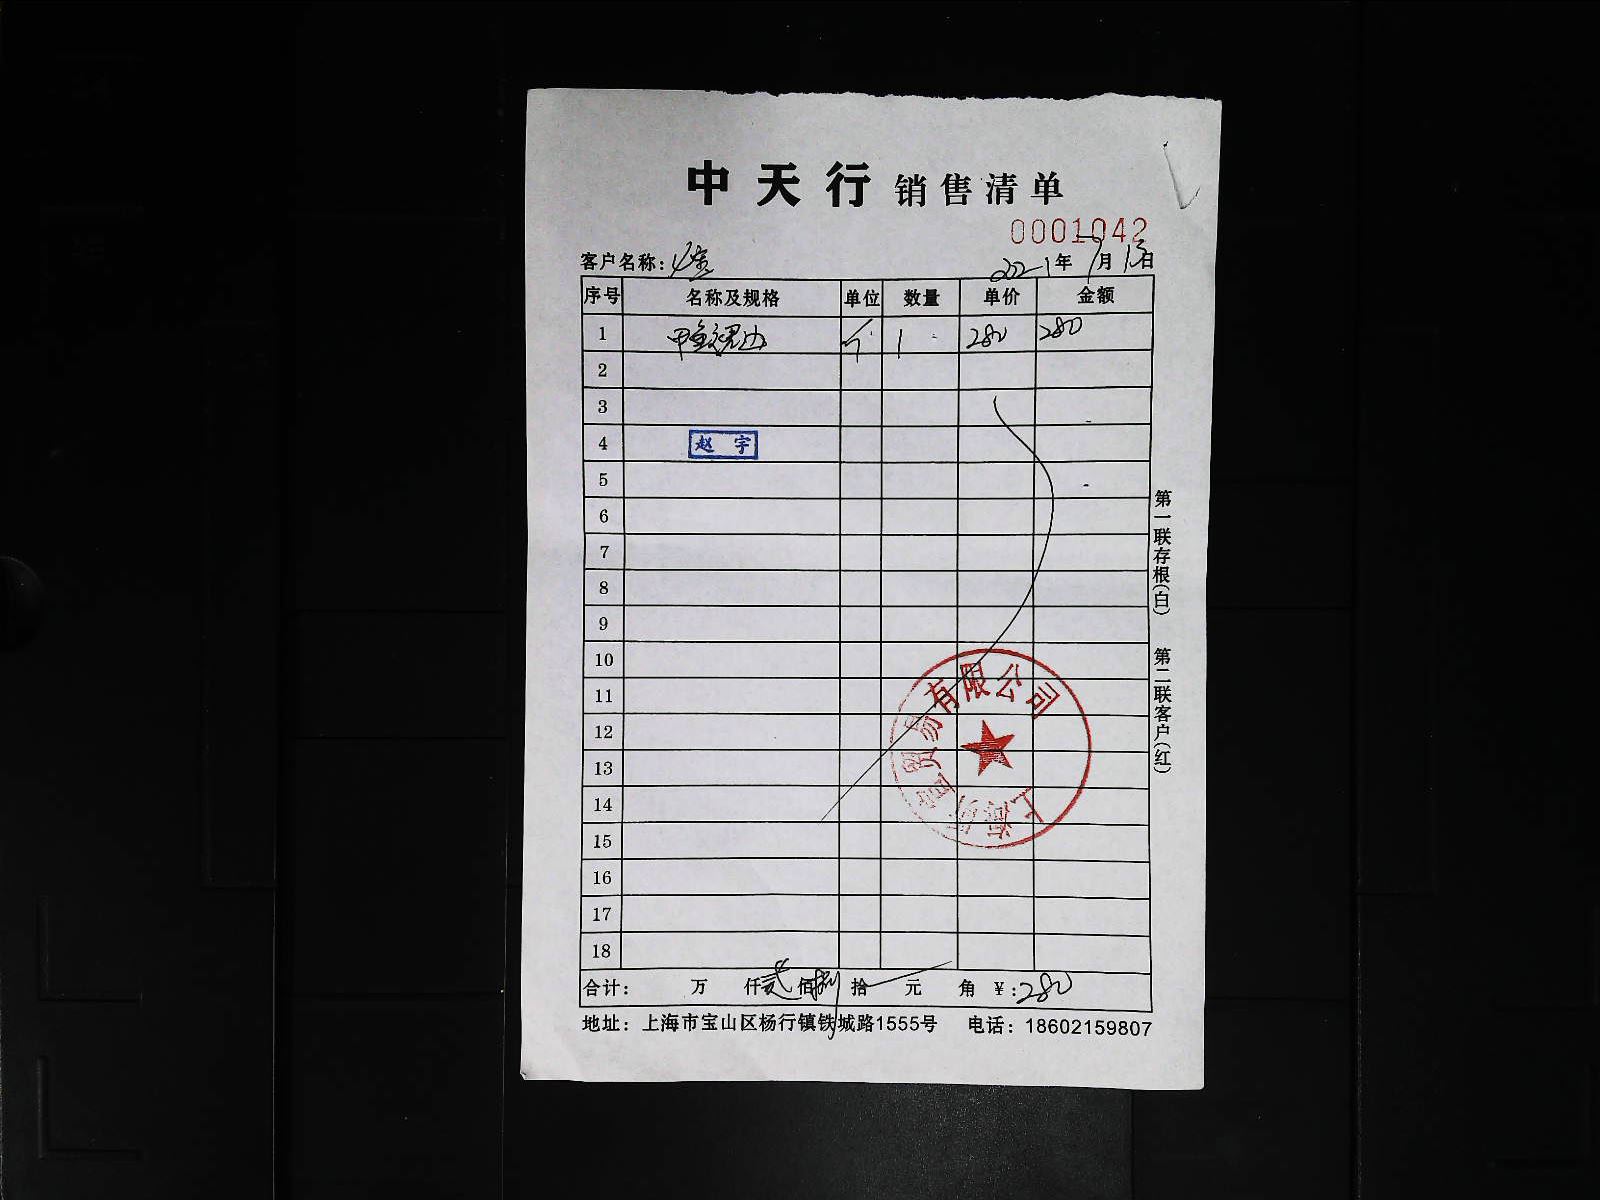 中天行 销售清单
0001042
客户名称: 2021年 月 日
序号 名称及规格 单位 数量 单价 金额
1 甲鱼裙边 个 1 280 280
2
3
4 赵宇
5
6
7
8
9
10
11
12
13
14
15
16
17
18
有限公司
上海
合计: 万 仟 贰 佰 捌 拾 元 角 ¥:280
地址: 上海市宝山区杨行镇铁城路1555号 电话: 18602159807
第一联存根(白) 第二联客户(红)